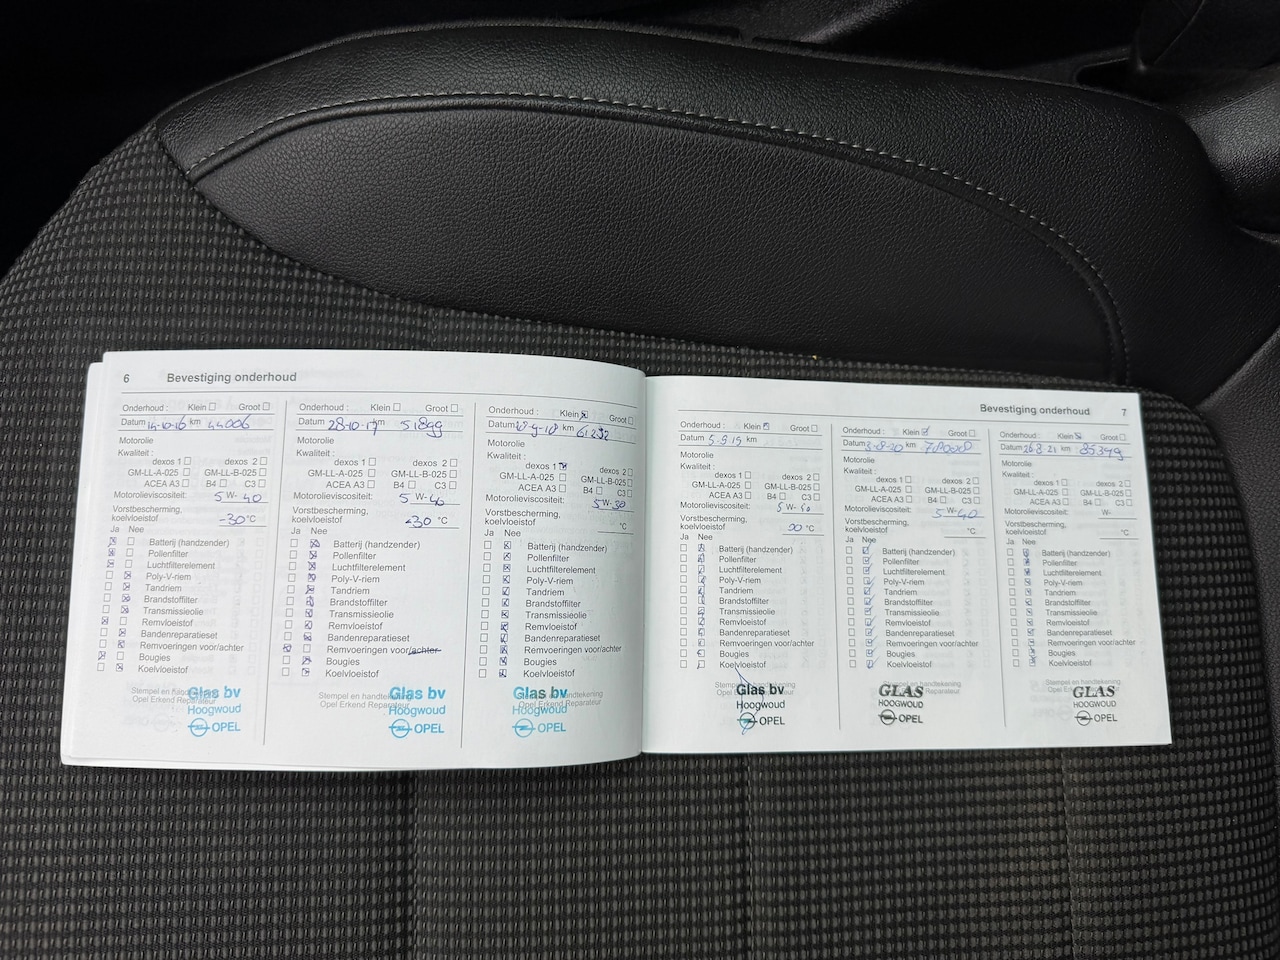 6 Bevestiging onderhoud
Onderhoud : Klein Groot
Datum 14-10-16 km 44006
Motorolie
Kwaliteit :
dexos 1 dexos 2
GM-LL-A-025 GM-LL-B-025
ACEA A3 B4 C3
Motorolieviscositeit: 5 W- 40
Vorstbescherming,
koelvloeistof -30 °C
Ja Nee
Batterij (handzender)
Pollenfilter
Luchtfilterelement
Poly-V-riem
Tandriem
Brandstoffilter
Transmissieolie
Remvloeistof
Bandenreparatieset
Remvoeringen voor/achter
Bougies
Koelvloeistof
Stempel en handtekening
Opel Erkend Reparateur
Glas bv
Hoogwoud
OPEL
Onderhoud : Klein Groot
Datum 28-10-17 km 51899
Motorolie
Kwaliteit :
dexos 1 dexos 2
GM-LL-A-025 GM-LL-B-025
ACEA A3 B4 C3
Motorolieviscositeit: 5 W- 40
Vorstbescherming,
koelvloeistof -30 °C
Ja Nee
Batterij (handzender)
Pollenfilter
Luchtfilterelement
Poly-V-riem
Tandriem
Brandstoffilter
Transmissieolie
Remvloeistof
Bandenreparatieset
Remvoeringen voor/achter
Bougies
Koelvloeistof
Stempel en handtekening
Opel Erkend Reparateur
Glas bv
Hoogwoud
OPEL
Onderhoud : Klein Groot
Datum km 61232
Motorolie
Kwaliteit :
dexos 1 dexos 2
GM-LL-A-025 GM-LL-B-025
ACEA A3 B4 C3
Motorolieviscositeit: 5 W- 30
Vorstbescherming,
koelvloeistof °C
Ja Nee
Batterij (handzender)
Pollenfilter
Luchtfilterelement
Poly-V-riem
Tandriem
Brandstoffilter
Transmissieolie
Remvloeistof
Bandenreparatieset
Remvoeringen voor/achter
Bougies
Koelvloeistof
Stempel en handtekening
Opel Erkend Reparateur
Glas bv
Hoogwoud
OPEL
Bevestiging onderhoud 7
Onderhoud : Klein Groot
Datum 5-9-19 km
Motorolie
Kwaliteit :
dexos 1 dexos 2
GM-LL-A-025 GM-LL-B-025
ACEA A3 B4 C3
Motorolieviscositeit: 5 W-
Vorstbescherming,
koelvloeistof °C
Ja Nee
Batterij (handzender)
Pollenfilter
Luchtfilterelement
Poly-V-riem
Tandriem
Brandstoffilter
Transmissieolie
Remvloeistof
Bandenreparatieset
Remvoeringen voor/achter
Bougies
Koelvloeistof
Stempel en handtekening
Opel Erkend Reparateur
Glas bv
Hoogwoud
OPEL
Onderhoud : Klein Groot
Datum km
Motorolie
Kwaliteit :
dexos 1 dexos 2
GM-LL-A-025 GM-LL-B-025
ACEA A3 B4 C3
Motorolieviscositeit: 5 W- 40
Vorstbescherming,
koelvloeistof °C
Ja Nee
Batterij (handzender)
Pollenfilter
Luchtfilterelement
Poly-V-riem
Tandriem
Brandstoffilter
Transmissieolie
Remvloeistof
Bandenreparatieset
Remvoeringen voor/achter
Bougies
Koelvloeistof
Stempel en handtekening
Opel Erkend Reparateur
GLAS
HOOGWOUD
OPEL
Onderhoud : Klein Groot
Datum 26-8-21 km 85349
Motorolie
Kwaliteit :
dexos 1 dexos 2
GM-LL-A-025 GM-LL-B-025
ACEA A3 B4 C3
Motorolieviscositeit: W-
Vorstbescherming,
koelvloeistof °C
Ja Nee
Batterij (handzender)
Pollenfilter
Luchtfilterelement
Poly-V-riem
Tandriem
Brandstoffilter
Transmissieolie
Remvloeistof
Bandenreparatieset
Remvoeringen voor/achter
Bougies
Koelvloeistof
Stempel en handtekening
Opel Erkend Reparateur
GLAS
HOOGWOUD
OPEL